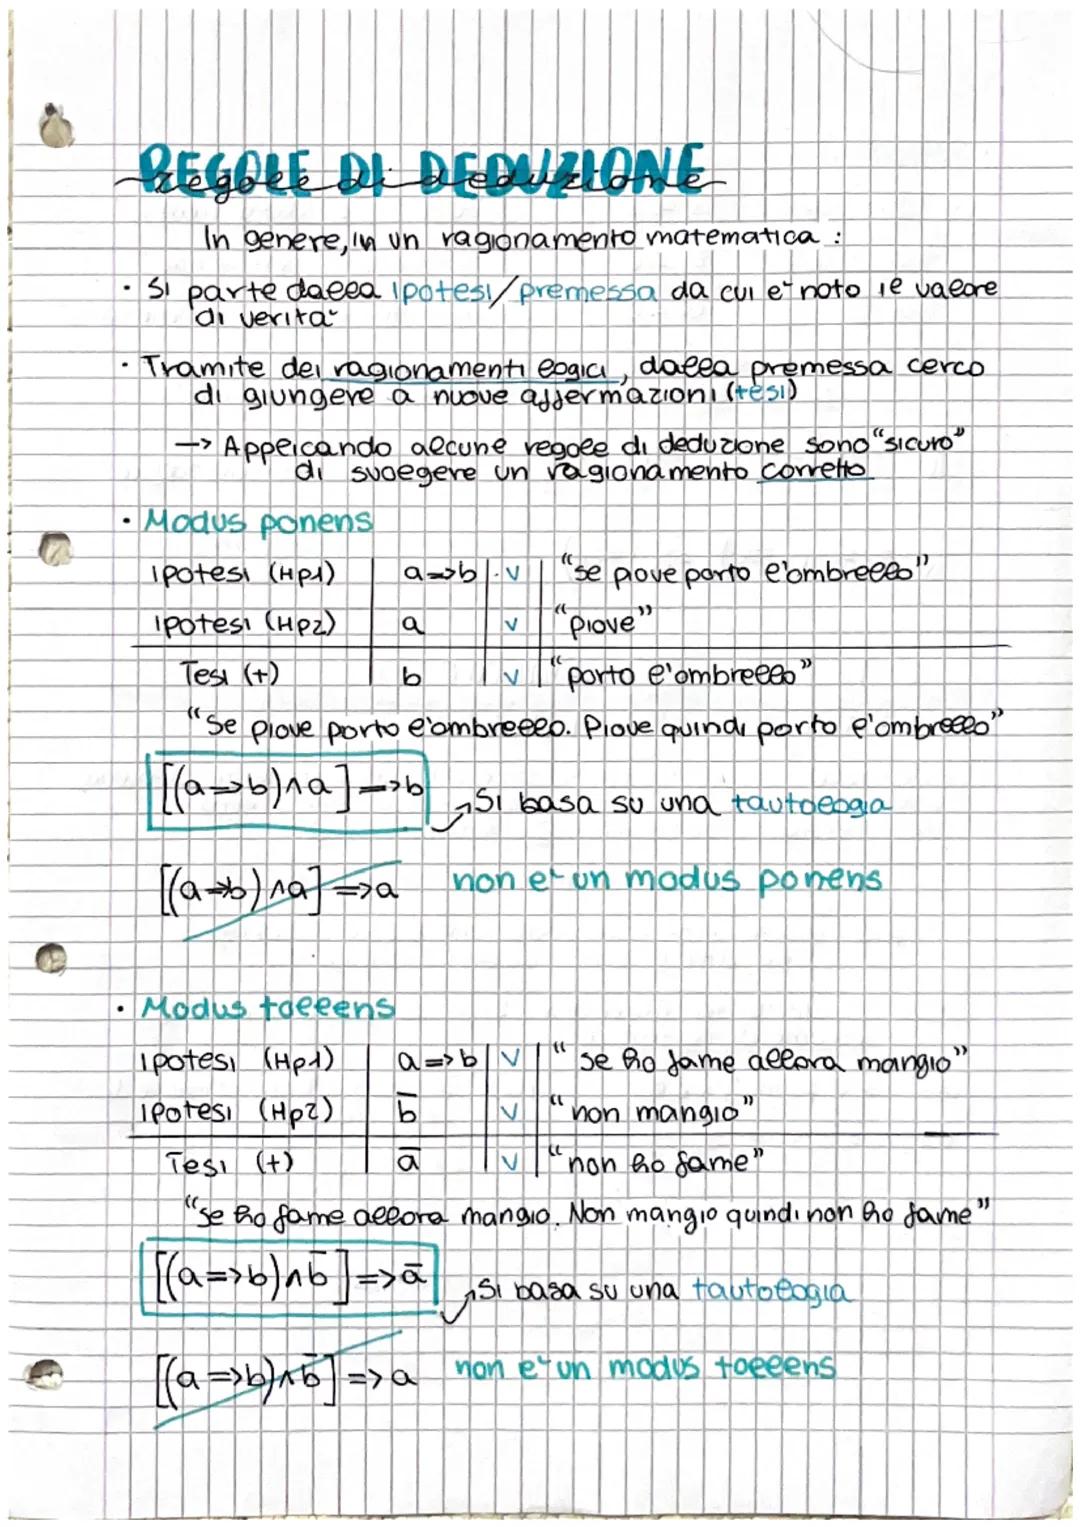 REGOLE DI DEDUZIONE
regole di deduzione
In genere, in un ragionamento matematica :
· Si parte dalla ipotesi/premessa da cui è noto il valore
di verità
· Tramite dei ragionamenti logici, dalla premessa cerco
di giungere a nuove affermazioni (tesi)
-> Applicando alcune regole di deduzione sono "sicuro"
di svolgere un ragionamento corretto
· Modus ponens
ipotesi (Hp1) a=>b · v "se piove porto l'ombrello"
ipotesi (Hp2) a v "piove"
Tesi (+) b v "porto l'ombrello"
"Se piove porto l'ombrello. Piove quindi porto l'ombrello"
[(a=>b)∧a]=>b Si basa su una tautologia
[(a=>b)∧a]=>a non è un modus ponens
· Modus tollens
ipotesi (Hp1) a=>b v "se ho fame allora mangio"
ipotesi (Hp2) b̅ v "non mangio"
Tesi (+) a̅ v "non ho fame"
"se ho fame allora mangio. Non mangio quindi non ho fame"
[(a=>b)∧b̅]=>a̅ Si basa su una tautologia
[(a=>b)∧b̅]=>a non è un modus tollens